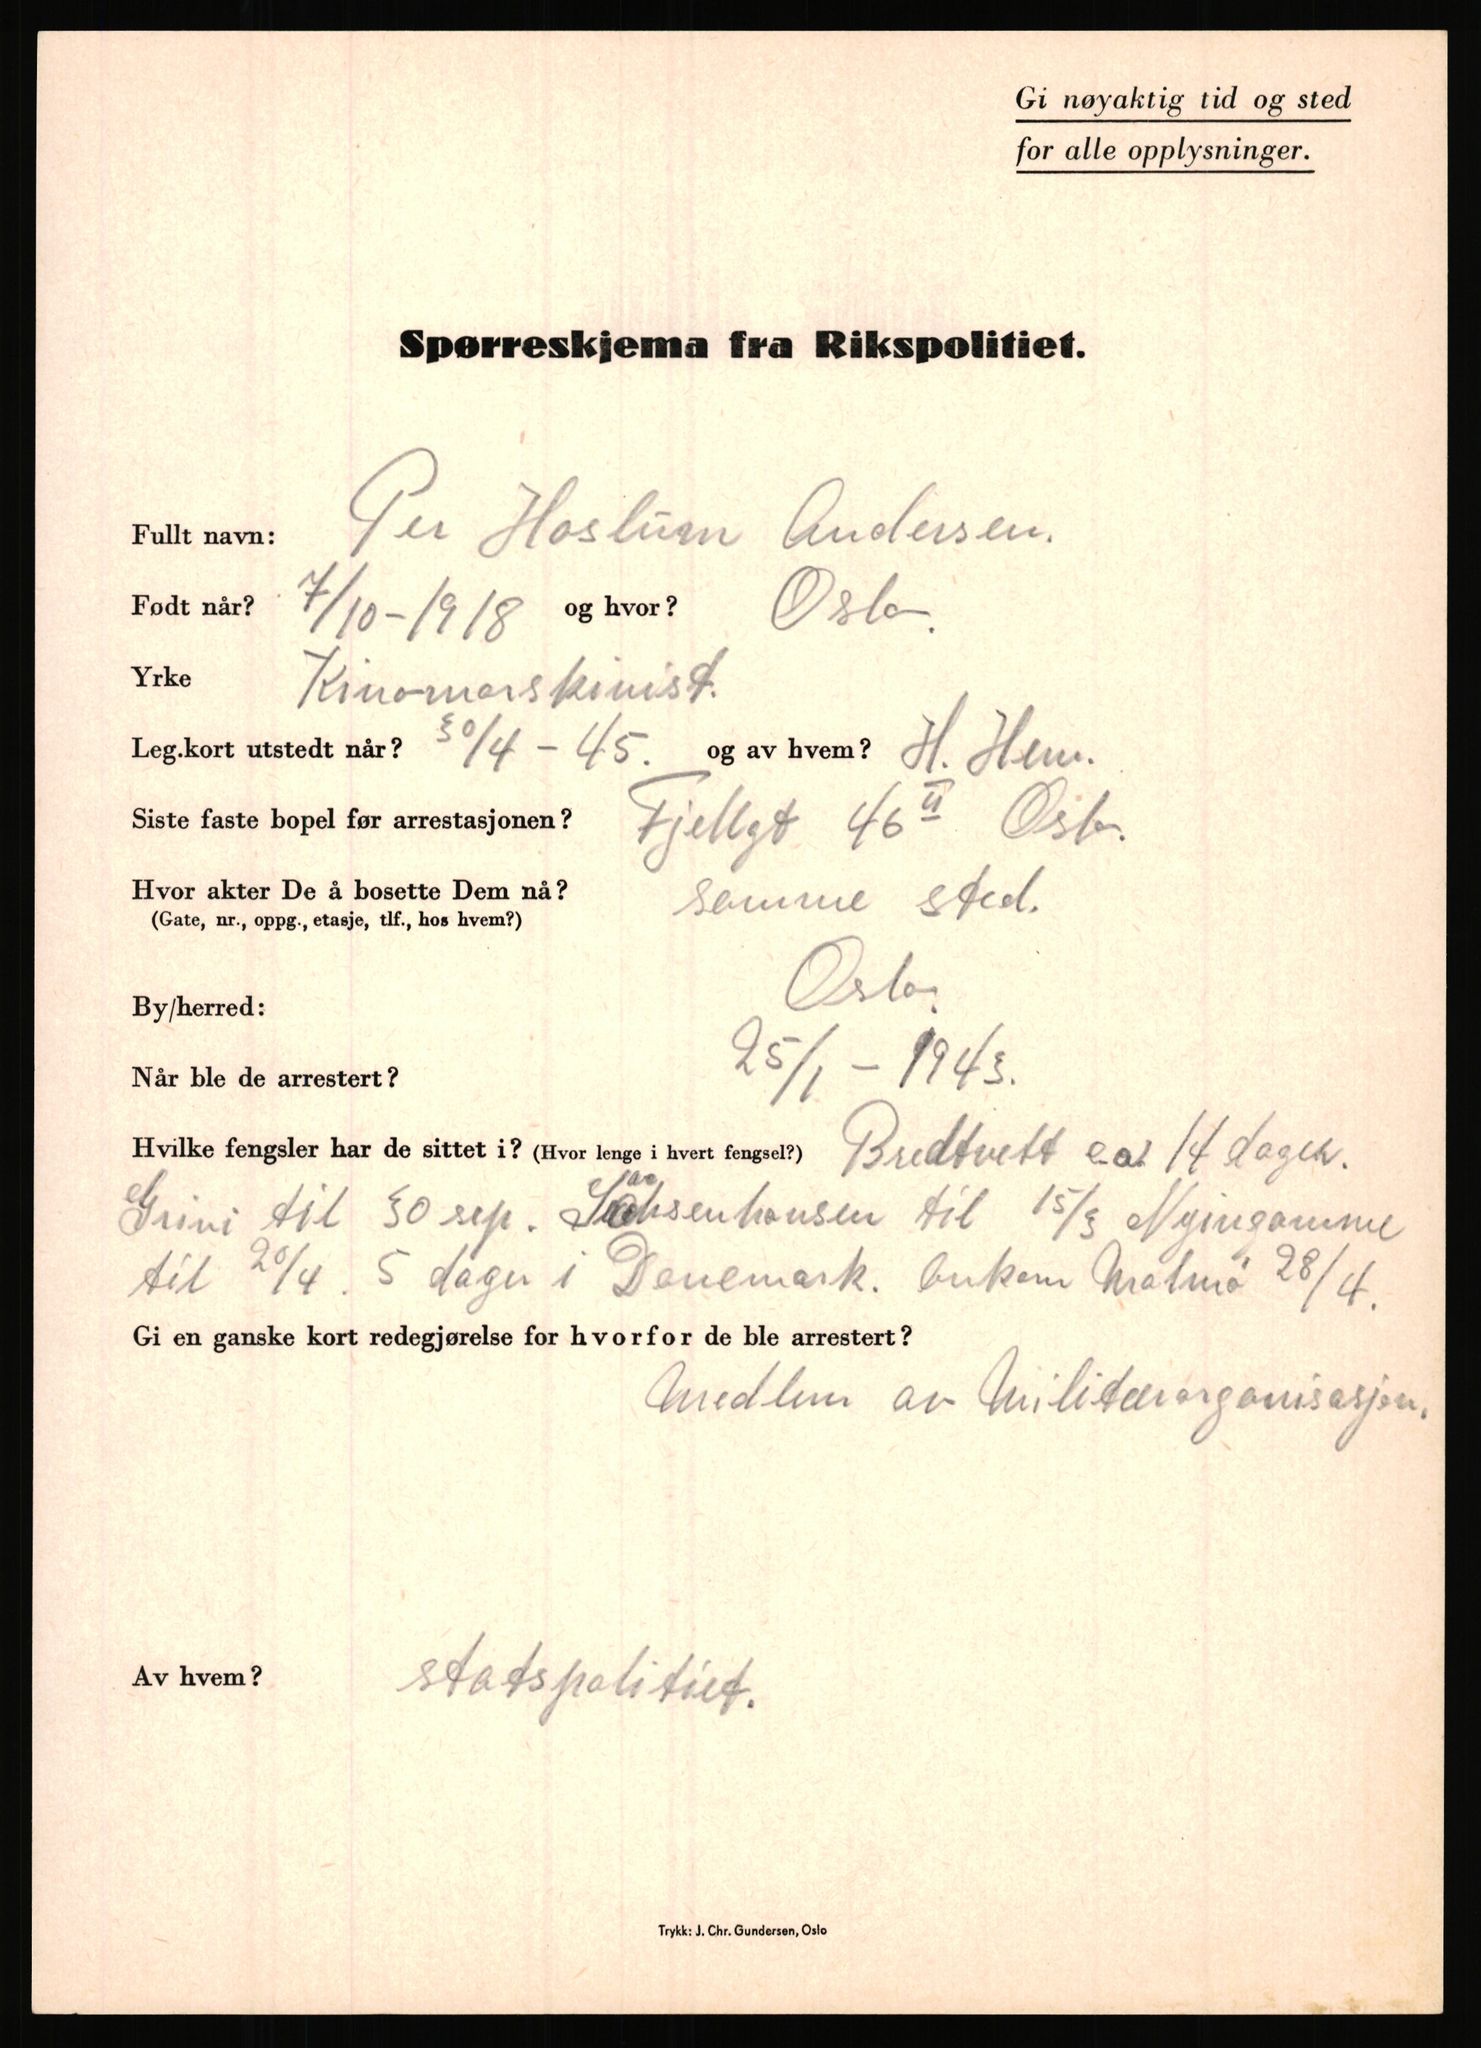 Gi nøyaktig tid og sted
for alle opplysninger.
Spørreskjema fra Rikspolitiet.
Fullt navn: Per Haslum Andersen.
Født når? 7/10-1918 og hvor? Oslo.
Yrke Kinomaskinist.
Leg.kort utstedt når? 30/4-45. og av hvem? H. Hem.
Siste faste bopel før arrestasjonen? Fjellgt 46 II Oslo.
Hvor akter De å bosette Dem nå? samme sted.
(Gate, nr., oppg., etasje, tlf., hos hvem?)
By/herred: Oslo.
Når ble de arrestert? 25/1-1943.
Hvilke fengsler har de sittet i? (Hvor lenge i hvert fengsel?) Bredtvett ca. 14 dager.
Grini til 30 sep. Sachsenhausen til 15/3 Nyingamme
til 20/4. 5 dager i Danemark. Ankom Malmö 28/4.
Gi en ganske kort redegjørelse for hvorfor de ble arrestert?
Medlem av Militærorganisasjon.
Av hvem? statspolitiet.
Trykk: J. Chr. Gundersen, Oslo